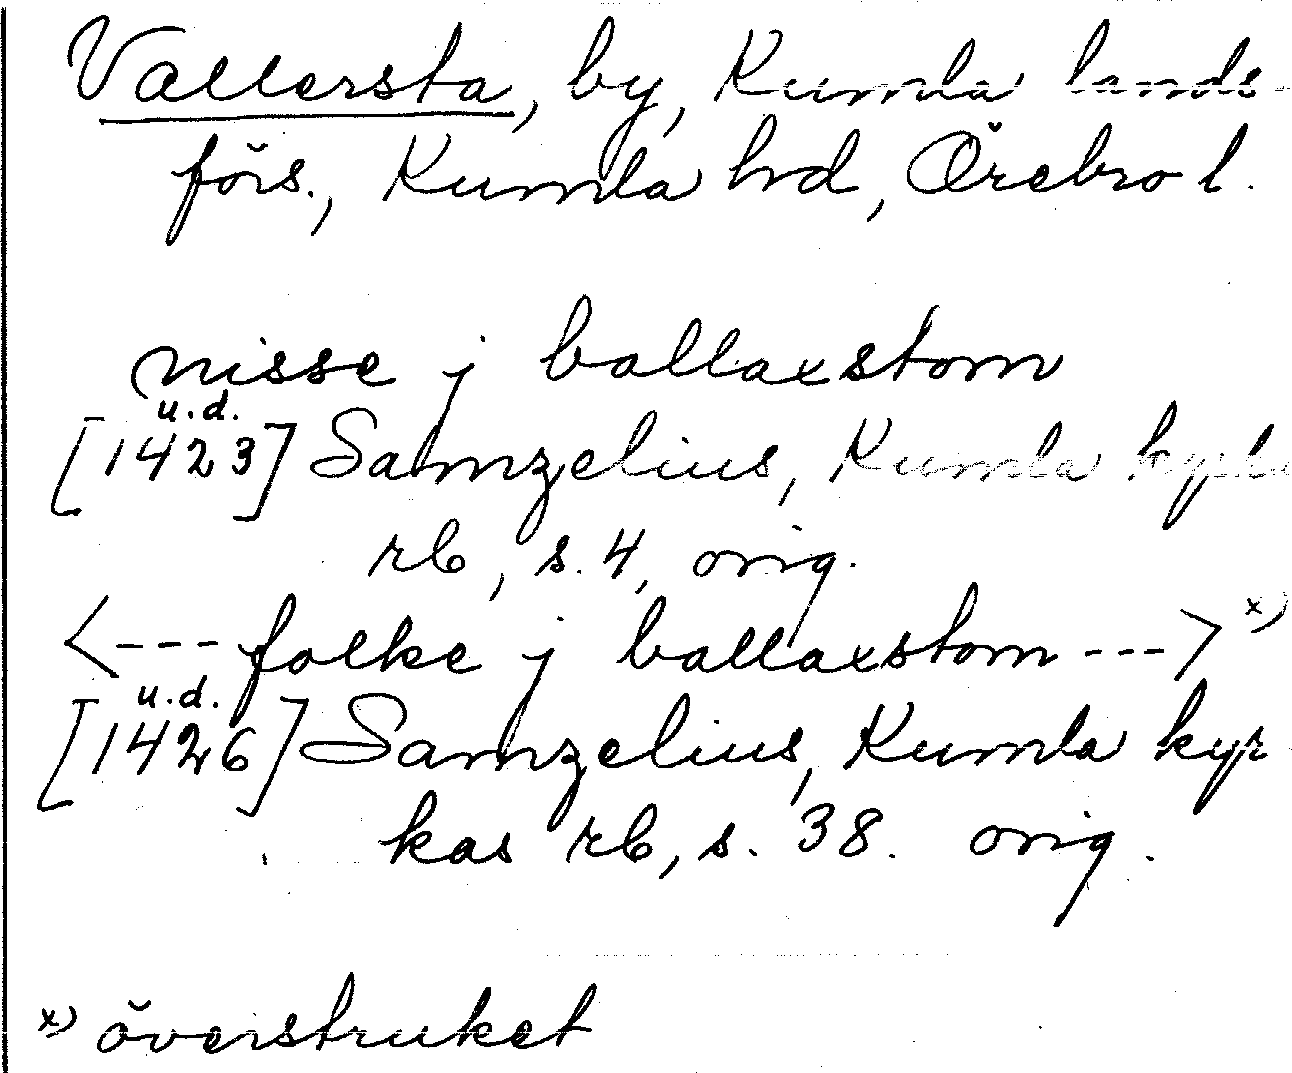 Vallersta, by, Kumla lands-
förs., Kumla hd, Örebro l.
nisse j ballaxstom
u.d.
[1423] Samzelius, Kumla kyrka
rb, s. 4, orig.
<--- folke j ballaxstom --->x)
u.d.
[1426] Samzelius, Kumla kyr
kas rb, s. 38. orig.
x) överstruket